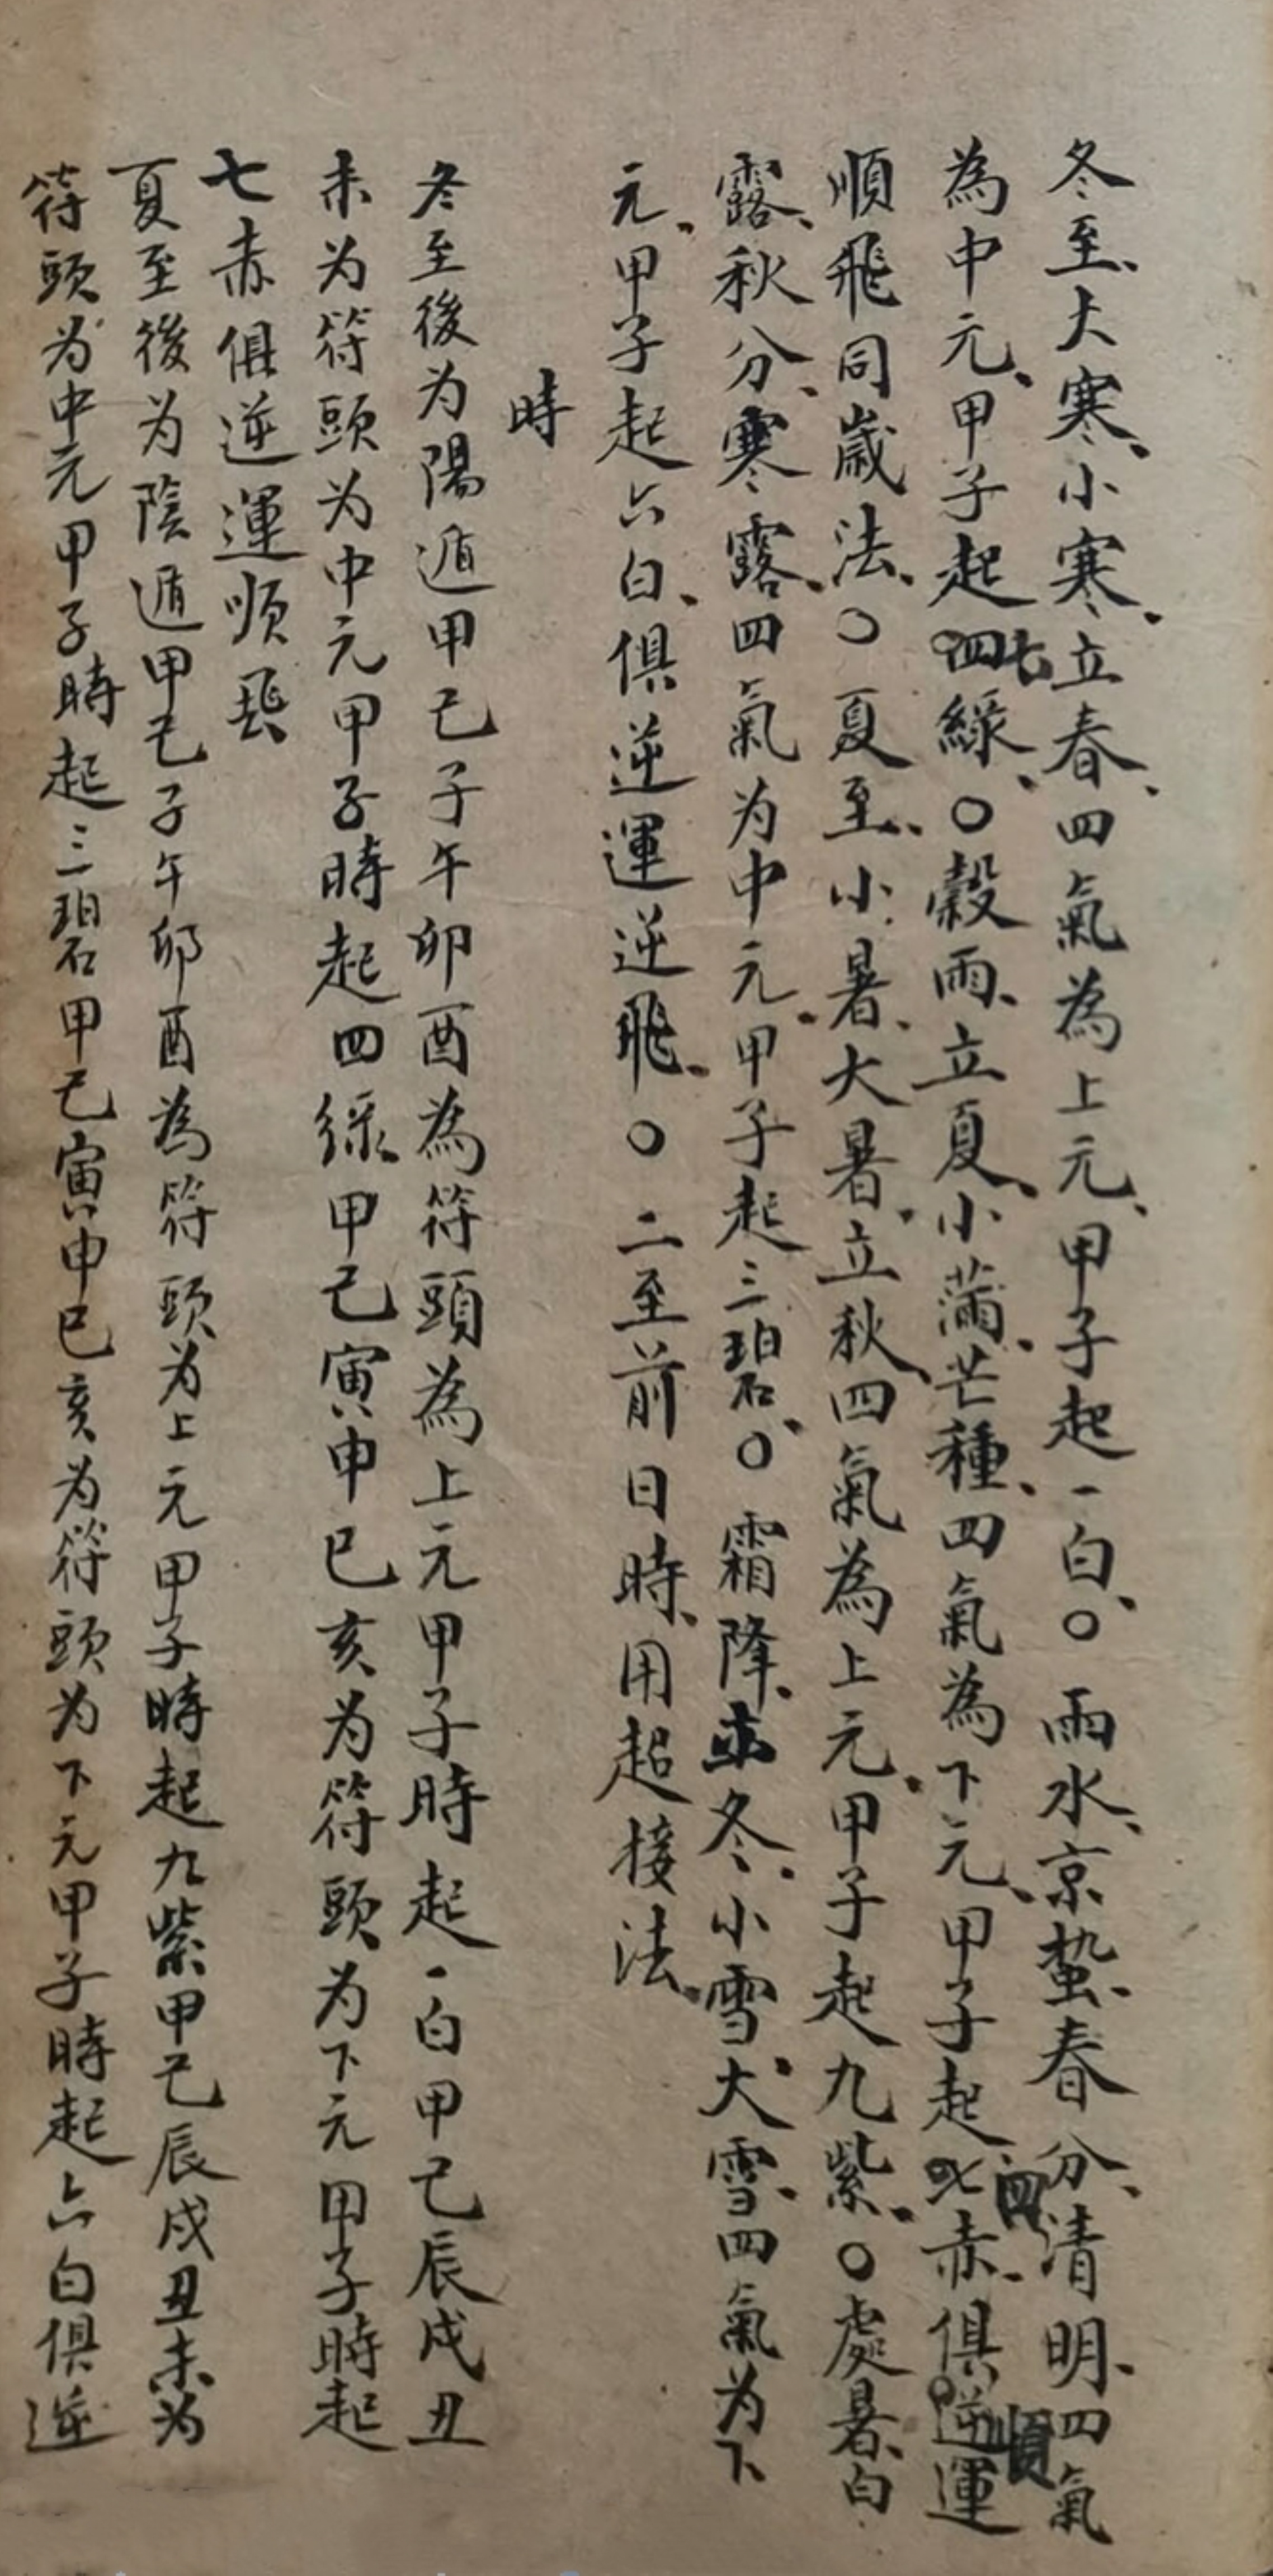 冬至大寒小寒立春四氣為上元甲子起一白〇雨水京蟄春分清明四氣
為中元甲子起四七綠〇穀雨立夏小滿芒種四氣為下元甲子起七四赤俱逆順運
順飛同歲法〇夏至小暑大暑立秋四氣為上元甲子起九紫〇處暑白
露秋分寒露四氣为中元甲子起三碧〇霜降立冬小雪大雪四氣为下
元甲子起六白俱逆運逆飛〇二至前日時用超接法
時
冬至後为陽遁甲己子午卯酉為符頭為上元甲子時起一白甲己辰戌丑
未为符頭为中元甲子時起四綠甲己寅申巳亥为符頭为下元甲子時起
七赤俱逆運順飛
夏至後为陰遁甲己子午卯酉為符頭为上元甲子時起九紫甲己辰戌丑未为
符頭为中元甲子時起三碧甲己寅申巳亥为符頭为下元甲子時起六白俱逆